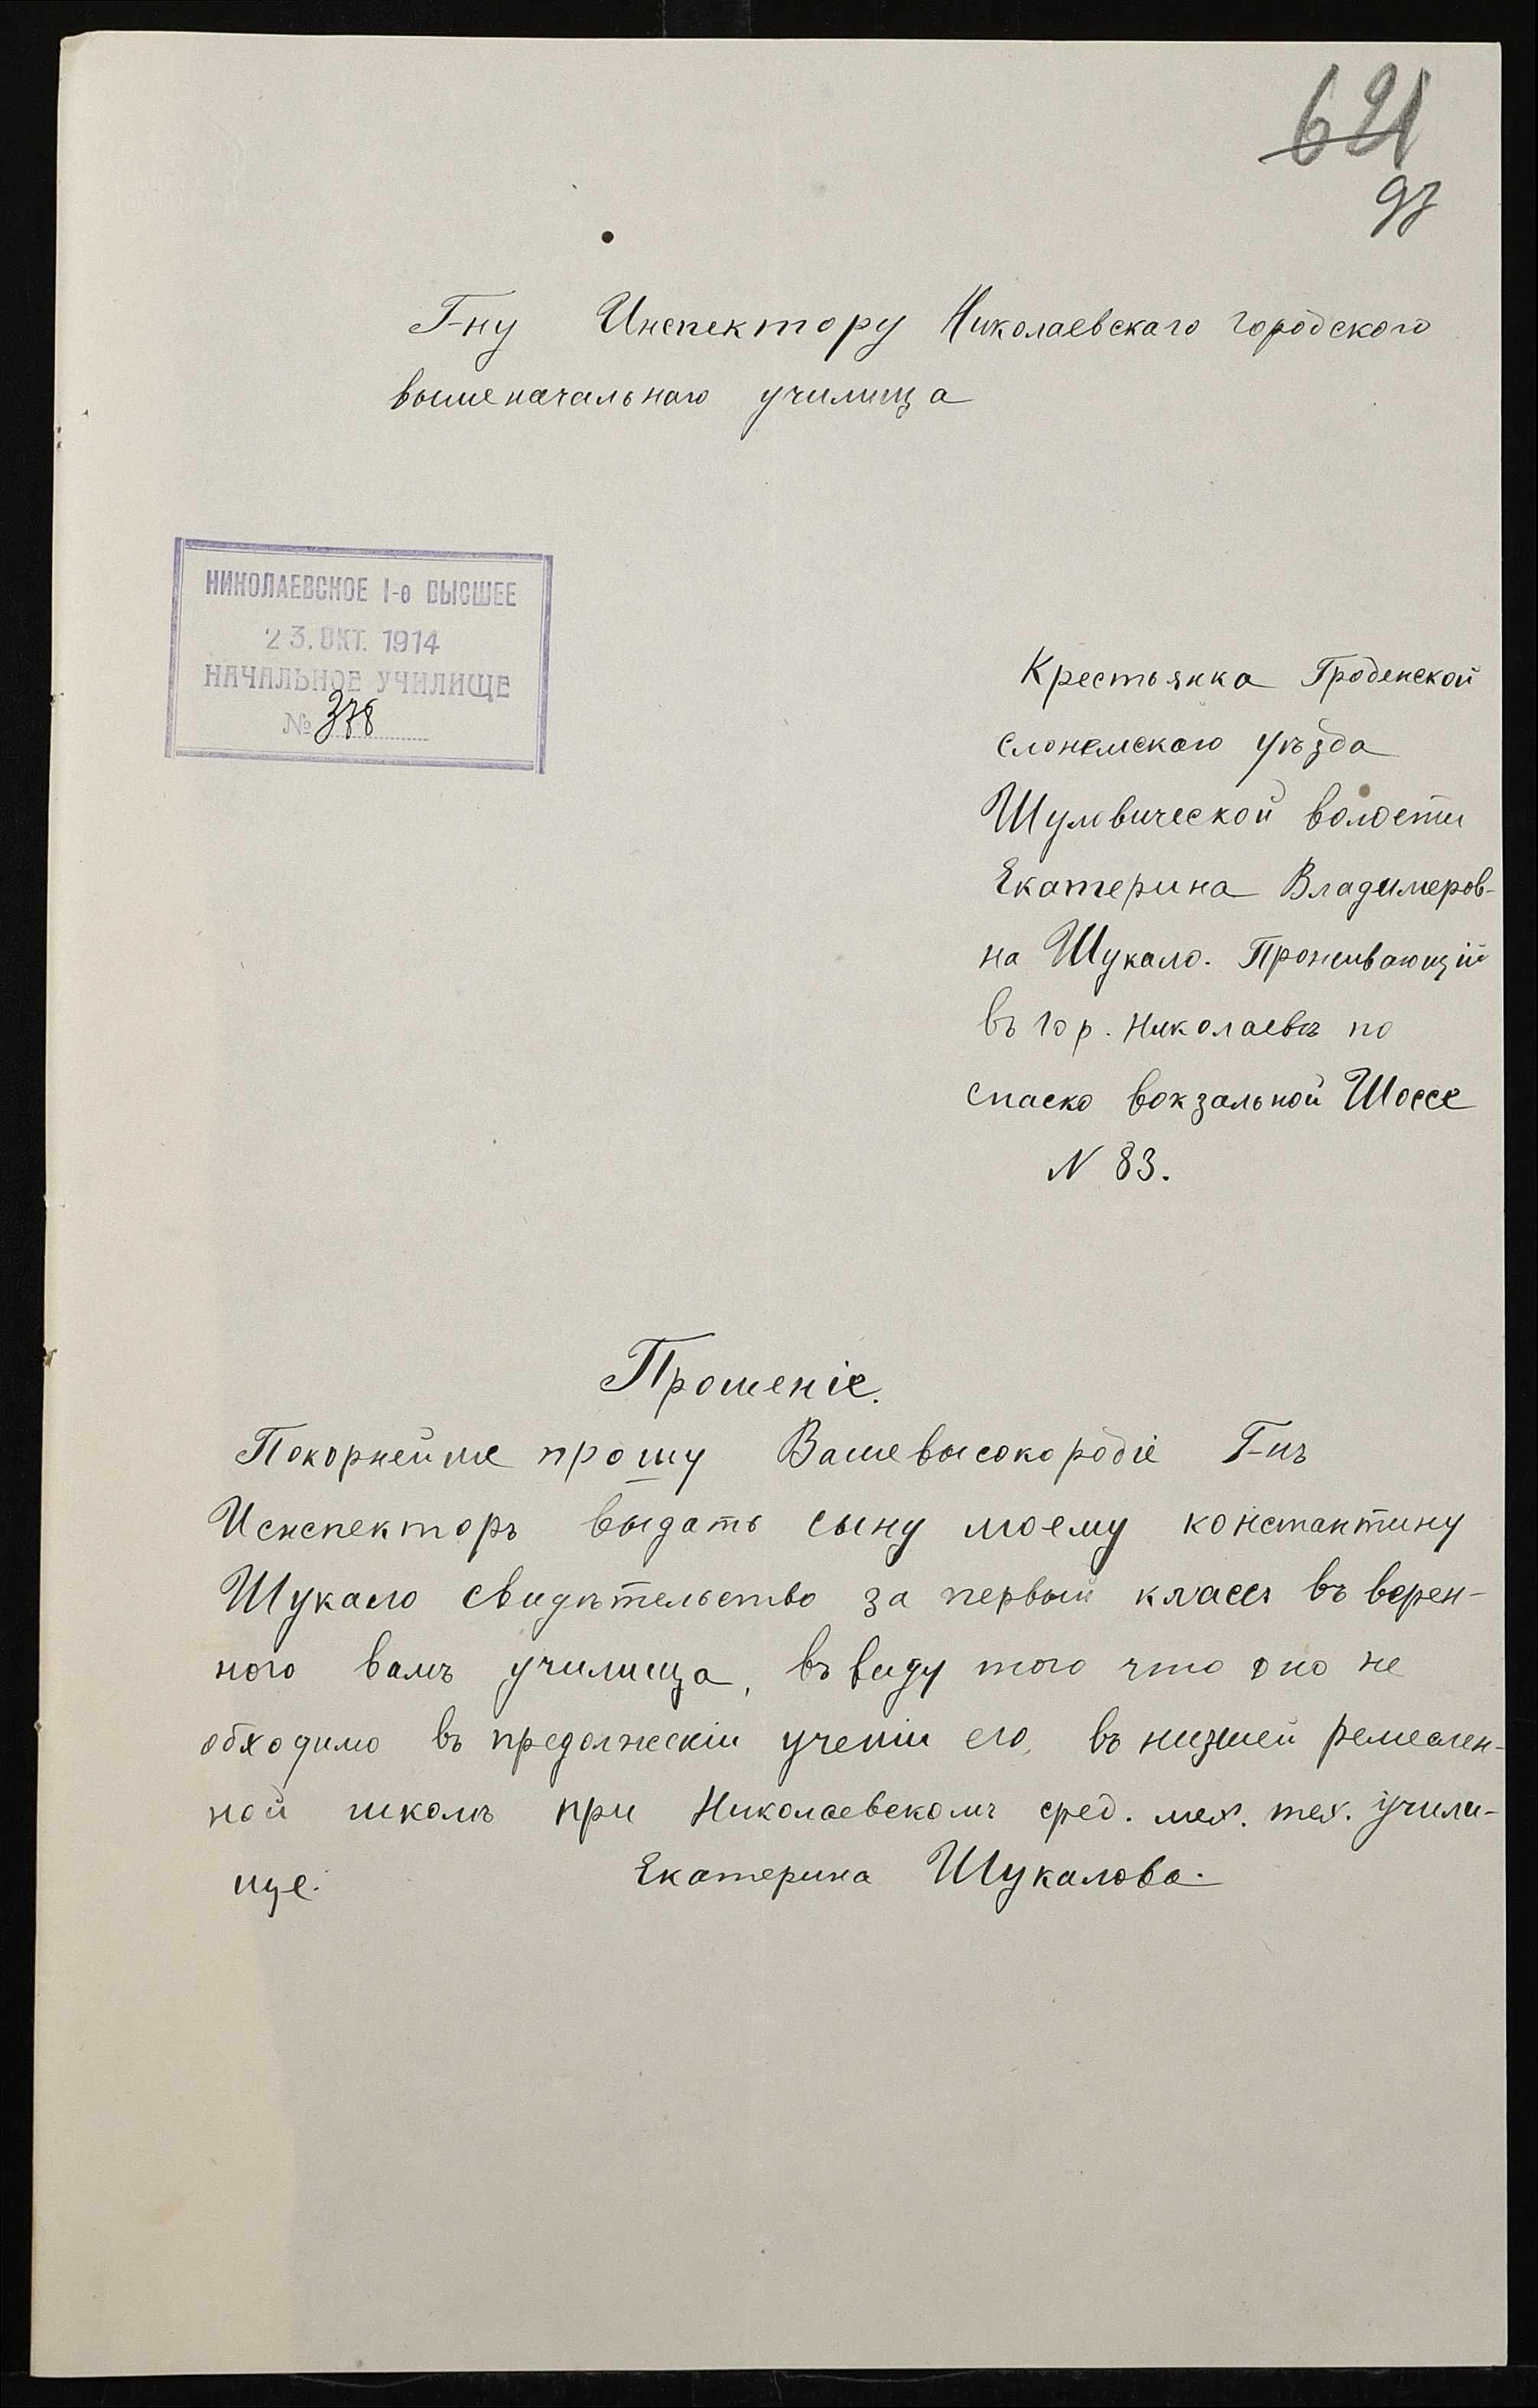 621
93
Г-ну Инспектору Николаевскаго городского
вышеначальнаго училища
НИКОЛАЕВСКОЕ 1-е ВЫСШЕЕ
23. ОКТ. 1914
НАЧАЛЬНОЕ УЧИЛИЩЕ
№ 378
Крестьянка Гроденской
слонемского уѣзда
Шуловической волости
Екатерина Владимеров-
на Шукало. Проживающій
въ гор. Николаевѣ по
спаско вокзальной Шоссе
N 83.
Прошеніе.
Покорнейше прошу Вашевысокородіе Г-нъ
Иснспекторъ выдать сыну моему константину
Шукало свидѣтельство за первый классъ въ верен-
ного вамъ училища, въ виду того что оно не
обходимо въ предолжескіи ученіи его, въ низшей ремеслен-
ной школѣ при Николаевскомъ сред. мех. тех. учили-
ще.
Екатерина Шукалова.